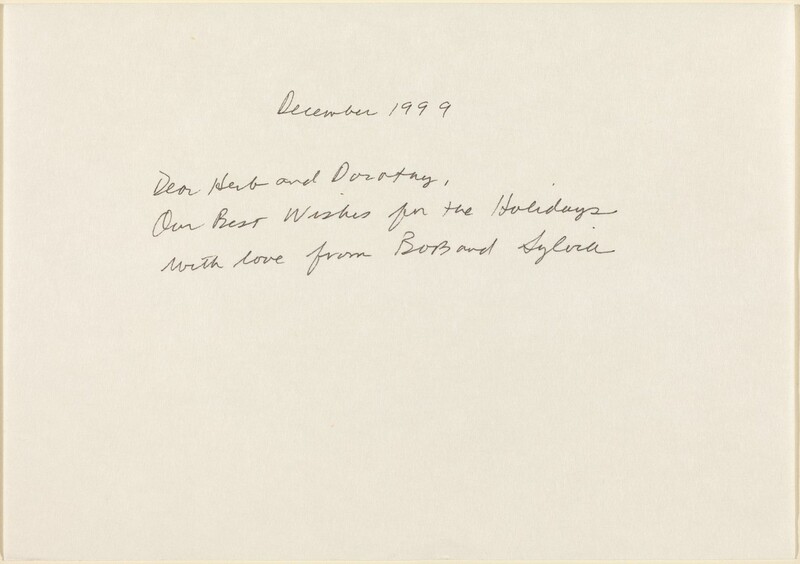 December 1999
Dear Herb and Dorothy,
Our Best Wishes for the Holidays
with love from Bob and Sylvia